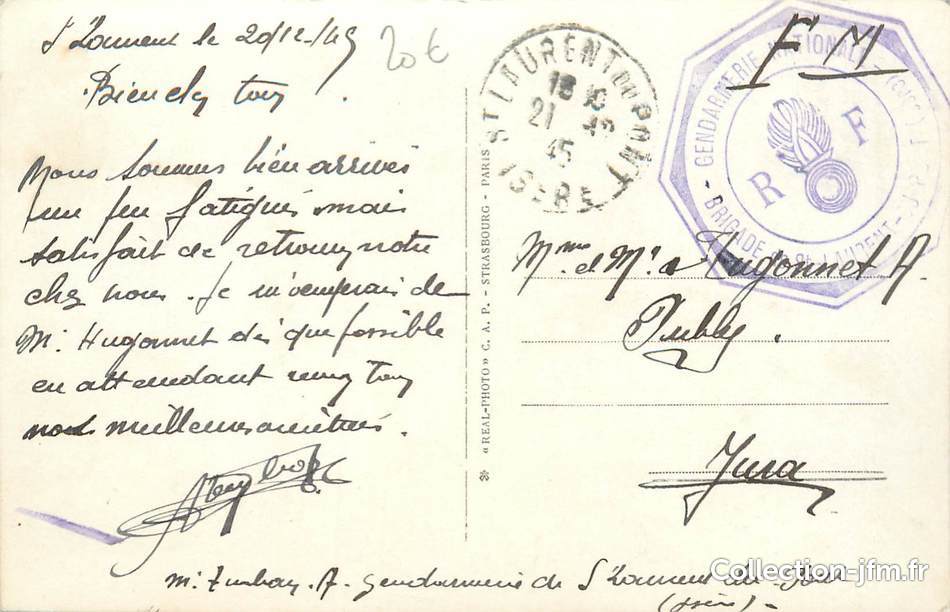 St Laurent le 20/12/45
20€
Bien chers tous
Nous sommes bien arrivés
un peu fatigués mais
satisfait de retrouver notre
chez nous. Je m'occuperais de
M. Hugonnet dès que possible
en attendant recevez tous
nos meilleures amitiés.
M. A. gendarmerie de St Laurent du Pont
(Isère)
ST LAURENT DU PONT
18
21 12
45
ISERE
F M
GENDARMERIE NATIONALE
BRIGADE St LAURENT
R F
Mme et Mr Hugonnet A.
Jura
« REAL-PHOTO » C. A. P. - STRASBOURG - PARIS
Collection-jfm.fr